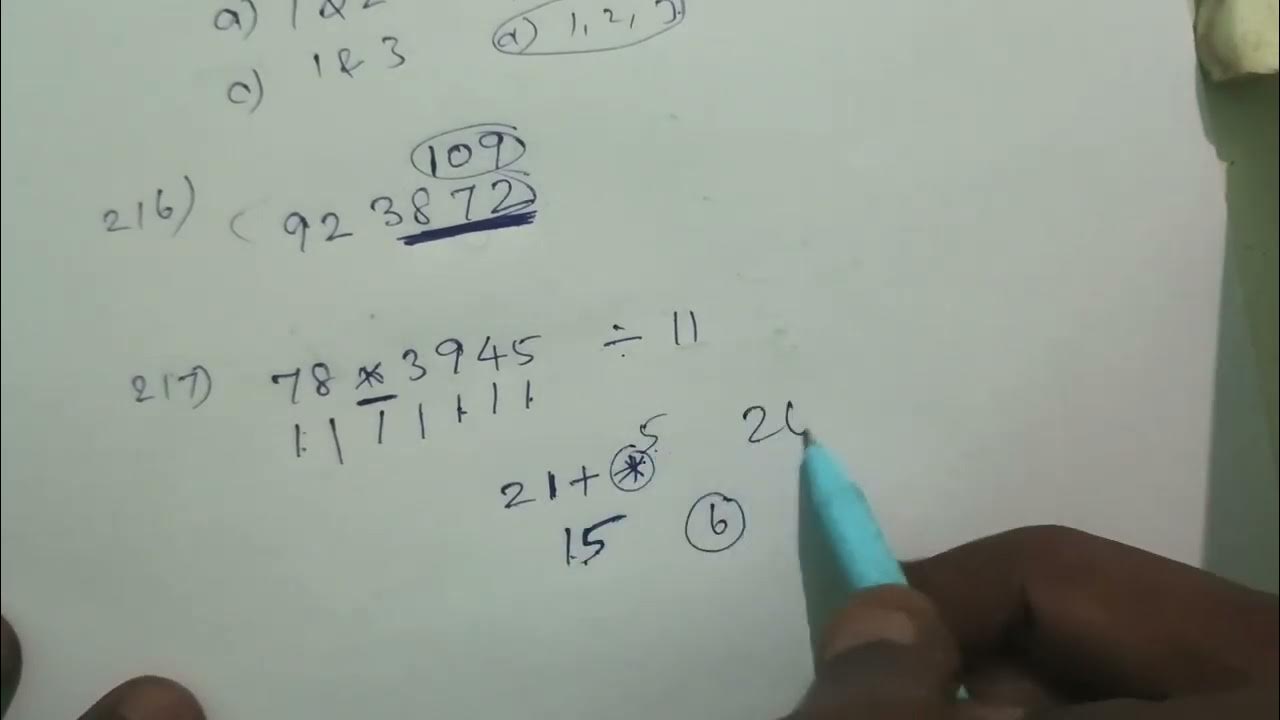 a) 1 & 2
d) 1, 2, 3
c) 1 & 3
109
216) ( 923872
217) 78*3945 ÷ 11
5
21+*
15 6